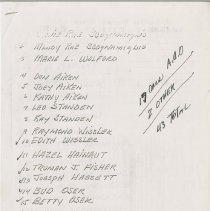 Rae Bodnovich
2 Mandy Rae Bodnovich
3 Marie L. Wolford
4 Don Aiken
5 Joey Aiken
6 Kathy Aiken
7 Leo Standen
8 Kay Standen
9 Raymond Wissler
10 Edith Wissler
11 Hazel Hainaut
12 Truman J. Fisher
13 Joseph Haslett
14 Bud Oser
15 Betty Oser
Other
43 Total